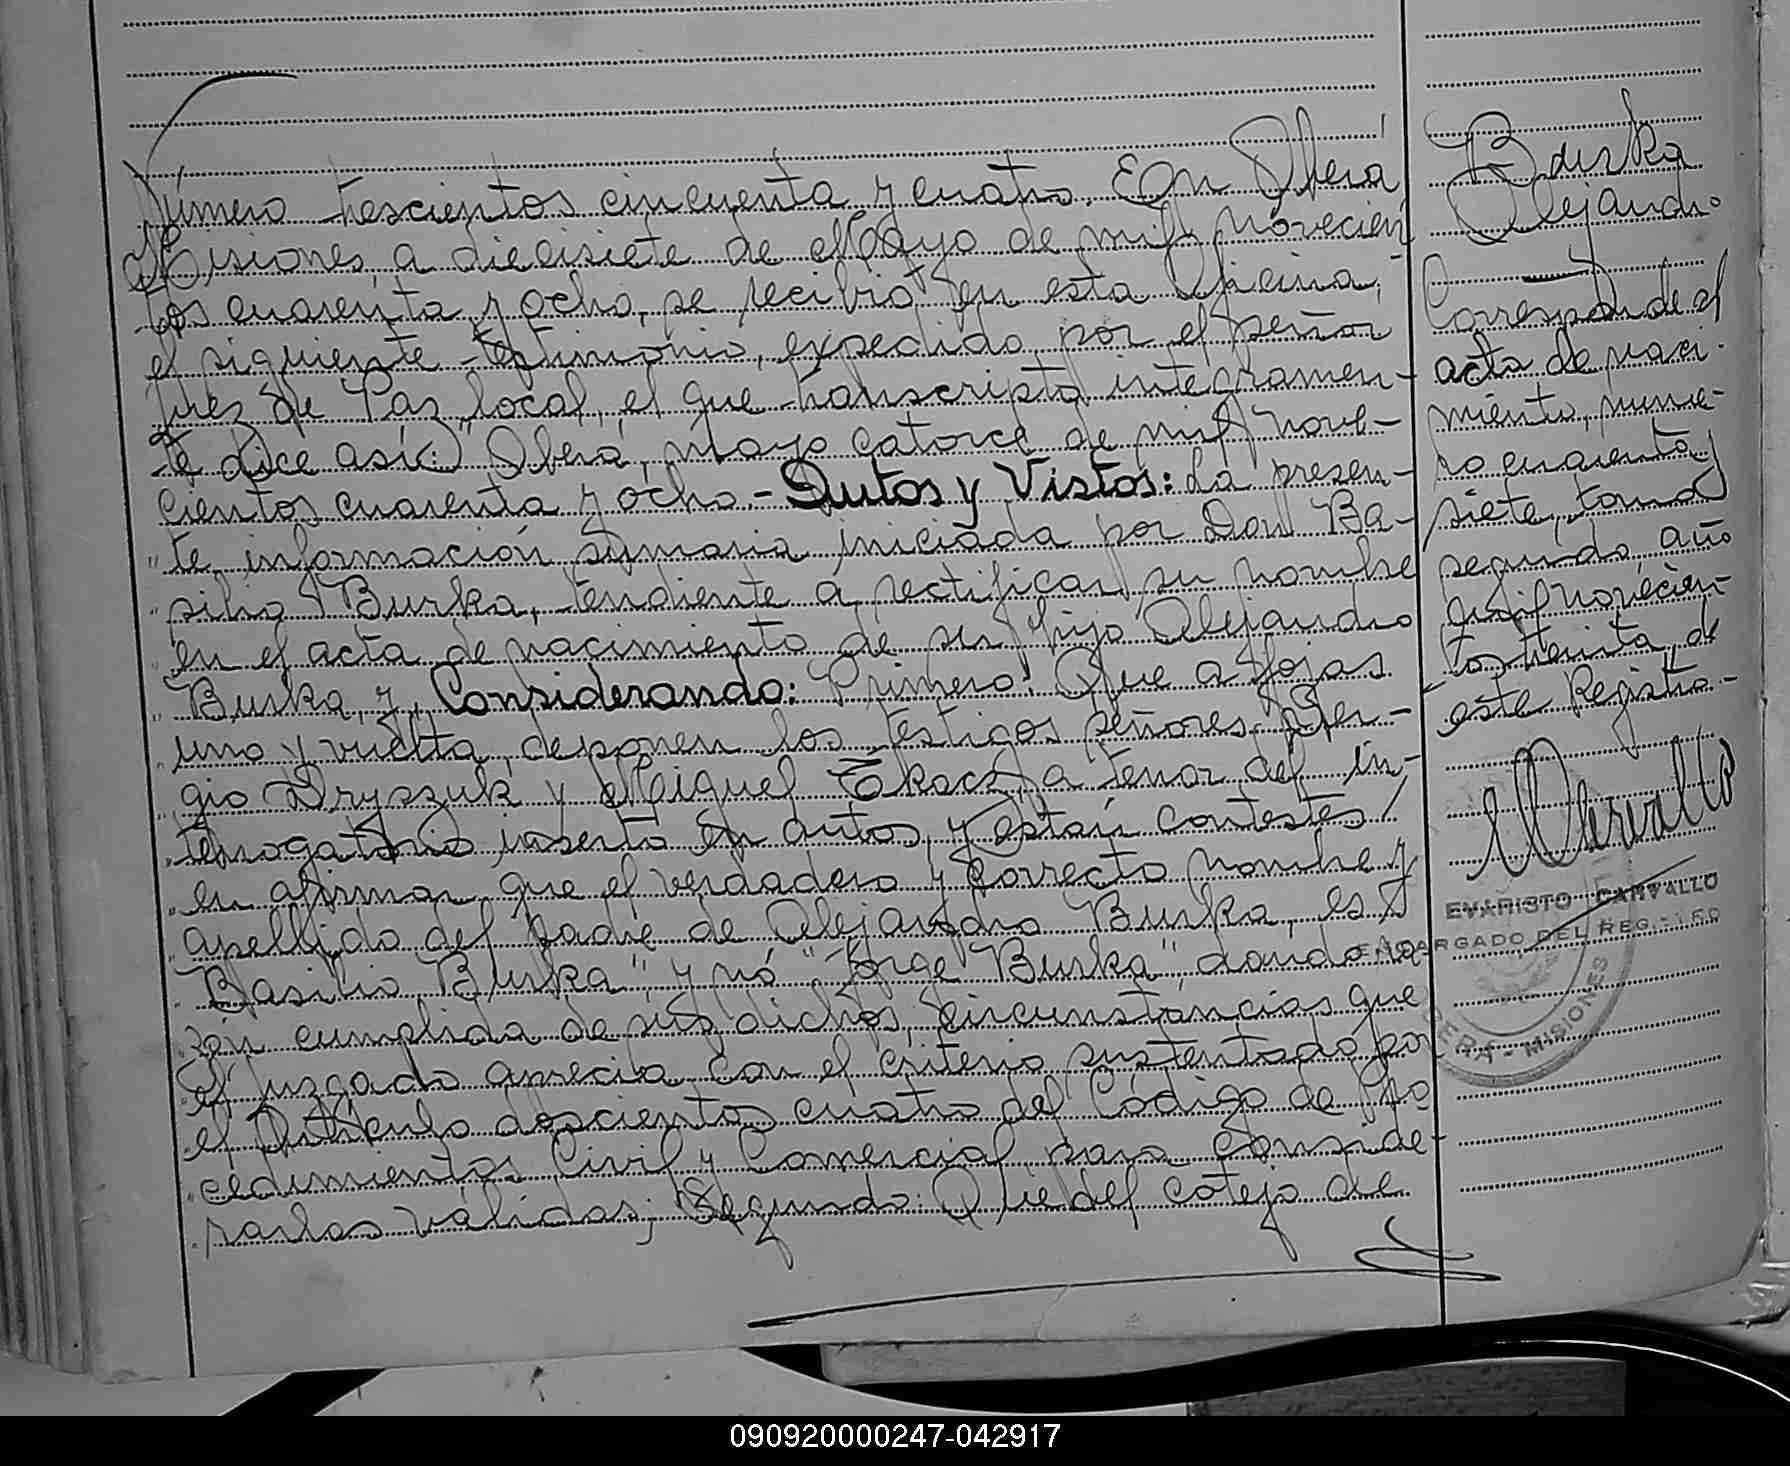 Número trescientos cincuenta y cuatro. En Oberá
Misiones, a diecisiete de Mayo de mil novecien
tos cuarenta y ocho, se recibió en esta Oficina,
el siguiente testimonio, expedido por el señor
Juez de Paz local, el que transcripto integramen-
te dice así: "Oberá, mayo catorce de mil nove-
cientos cuarenta y ocho.- Autos y Vistos: La presen-
" te información sumaria iniciada por Don Ba-
" silio Burka, tendiente a rectificar su nombre
" en el acta de nacimiento de su hijo Alejandro
" Burka, y, Considerando: Primero: Que a fojas
" uno y vuelta, deponen los testigos señores Ser-
" gio Dryszuk y Miguel Tkacz, a tenor del in-
" terrogatorio inserto en autos, y están contestes
" en afirmar que el verdadero y correcto nombre y
" apellido del padre de Alejandro Burka, es
" Basilio Burka" y nó "Jorge Burka", dando ra-
" zón cumplida de sus dichos, circunstancias que
" el juzgado aprecia con el criterio sustentado por
" el Artículo doscientos cuatro del Código de Pro
" cedimientos Civil y Comercial para conside-
" rarlos válidos; Segundo: Que del cotejo de
Burka
Alejandro
Corresponde al
acta de naci-
miento, núme-
ro cuarenta y
siete, tomo
segundo año
mil novecien-
tos treinta, de
este Registro.-
EVARISTO CARVALLO
ENCARGADO DEL REG.
OBERA - MISIONES
090920000247-042917